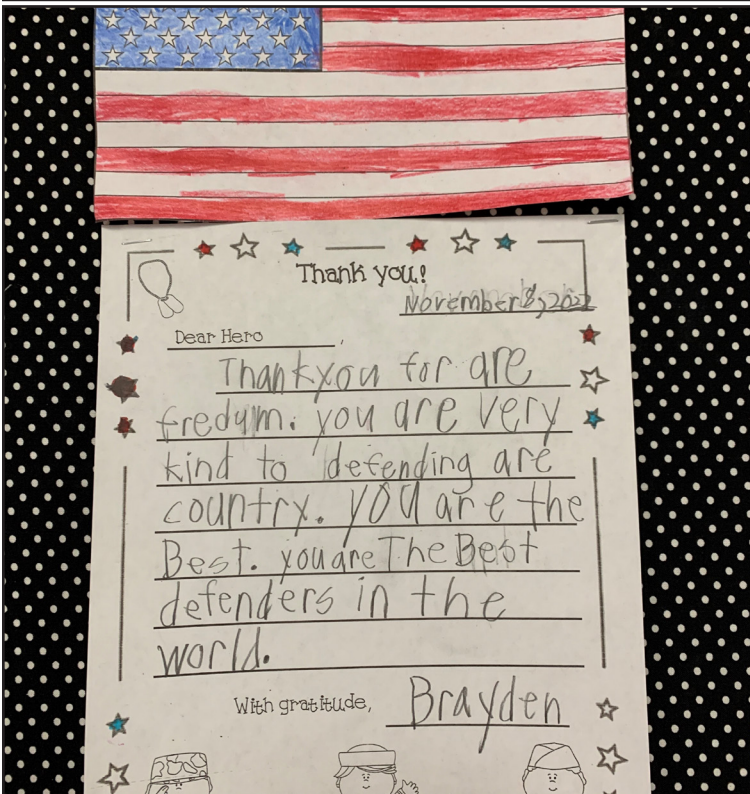 Thank you!
November 8, 2022
Dear Hero,
Thank you for are
fredum. you are very
kind to defending are
country. you are the
Best. you are The Best
defenders in the
world.
With gratitude, Brayden